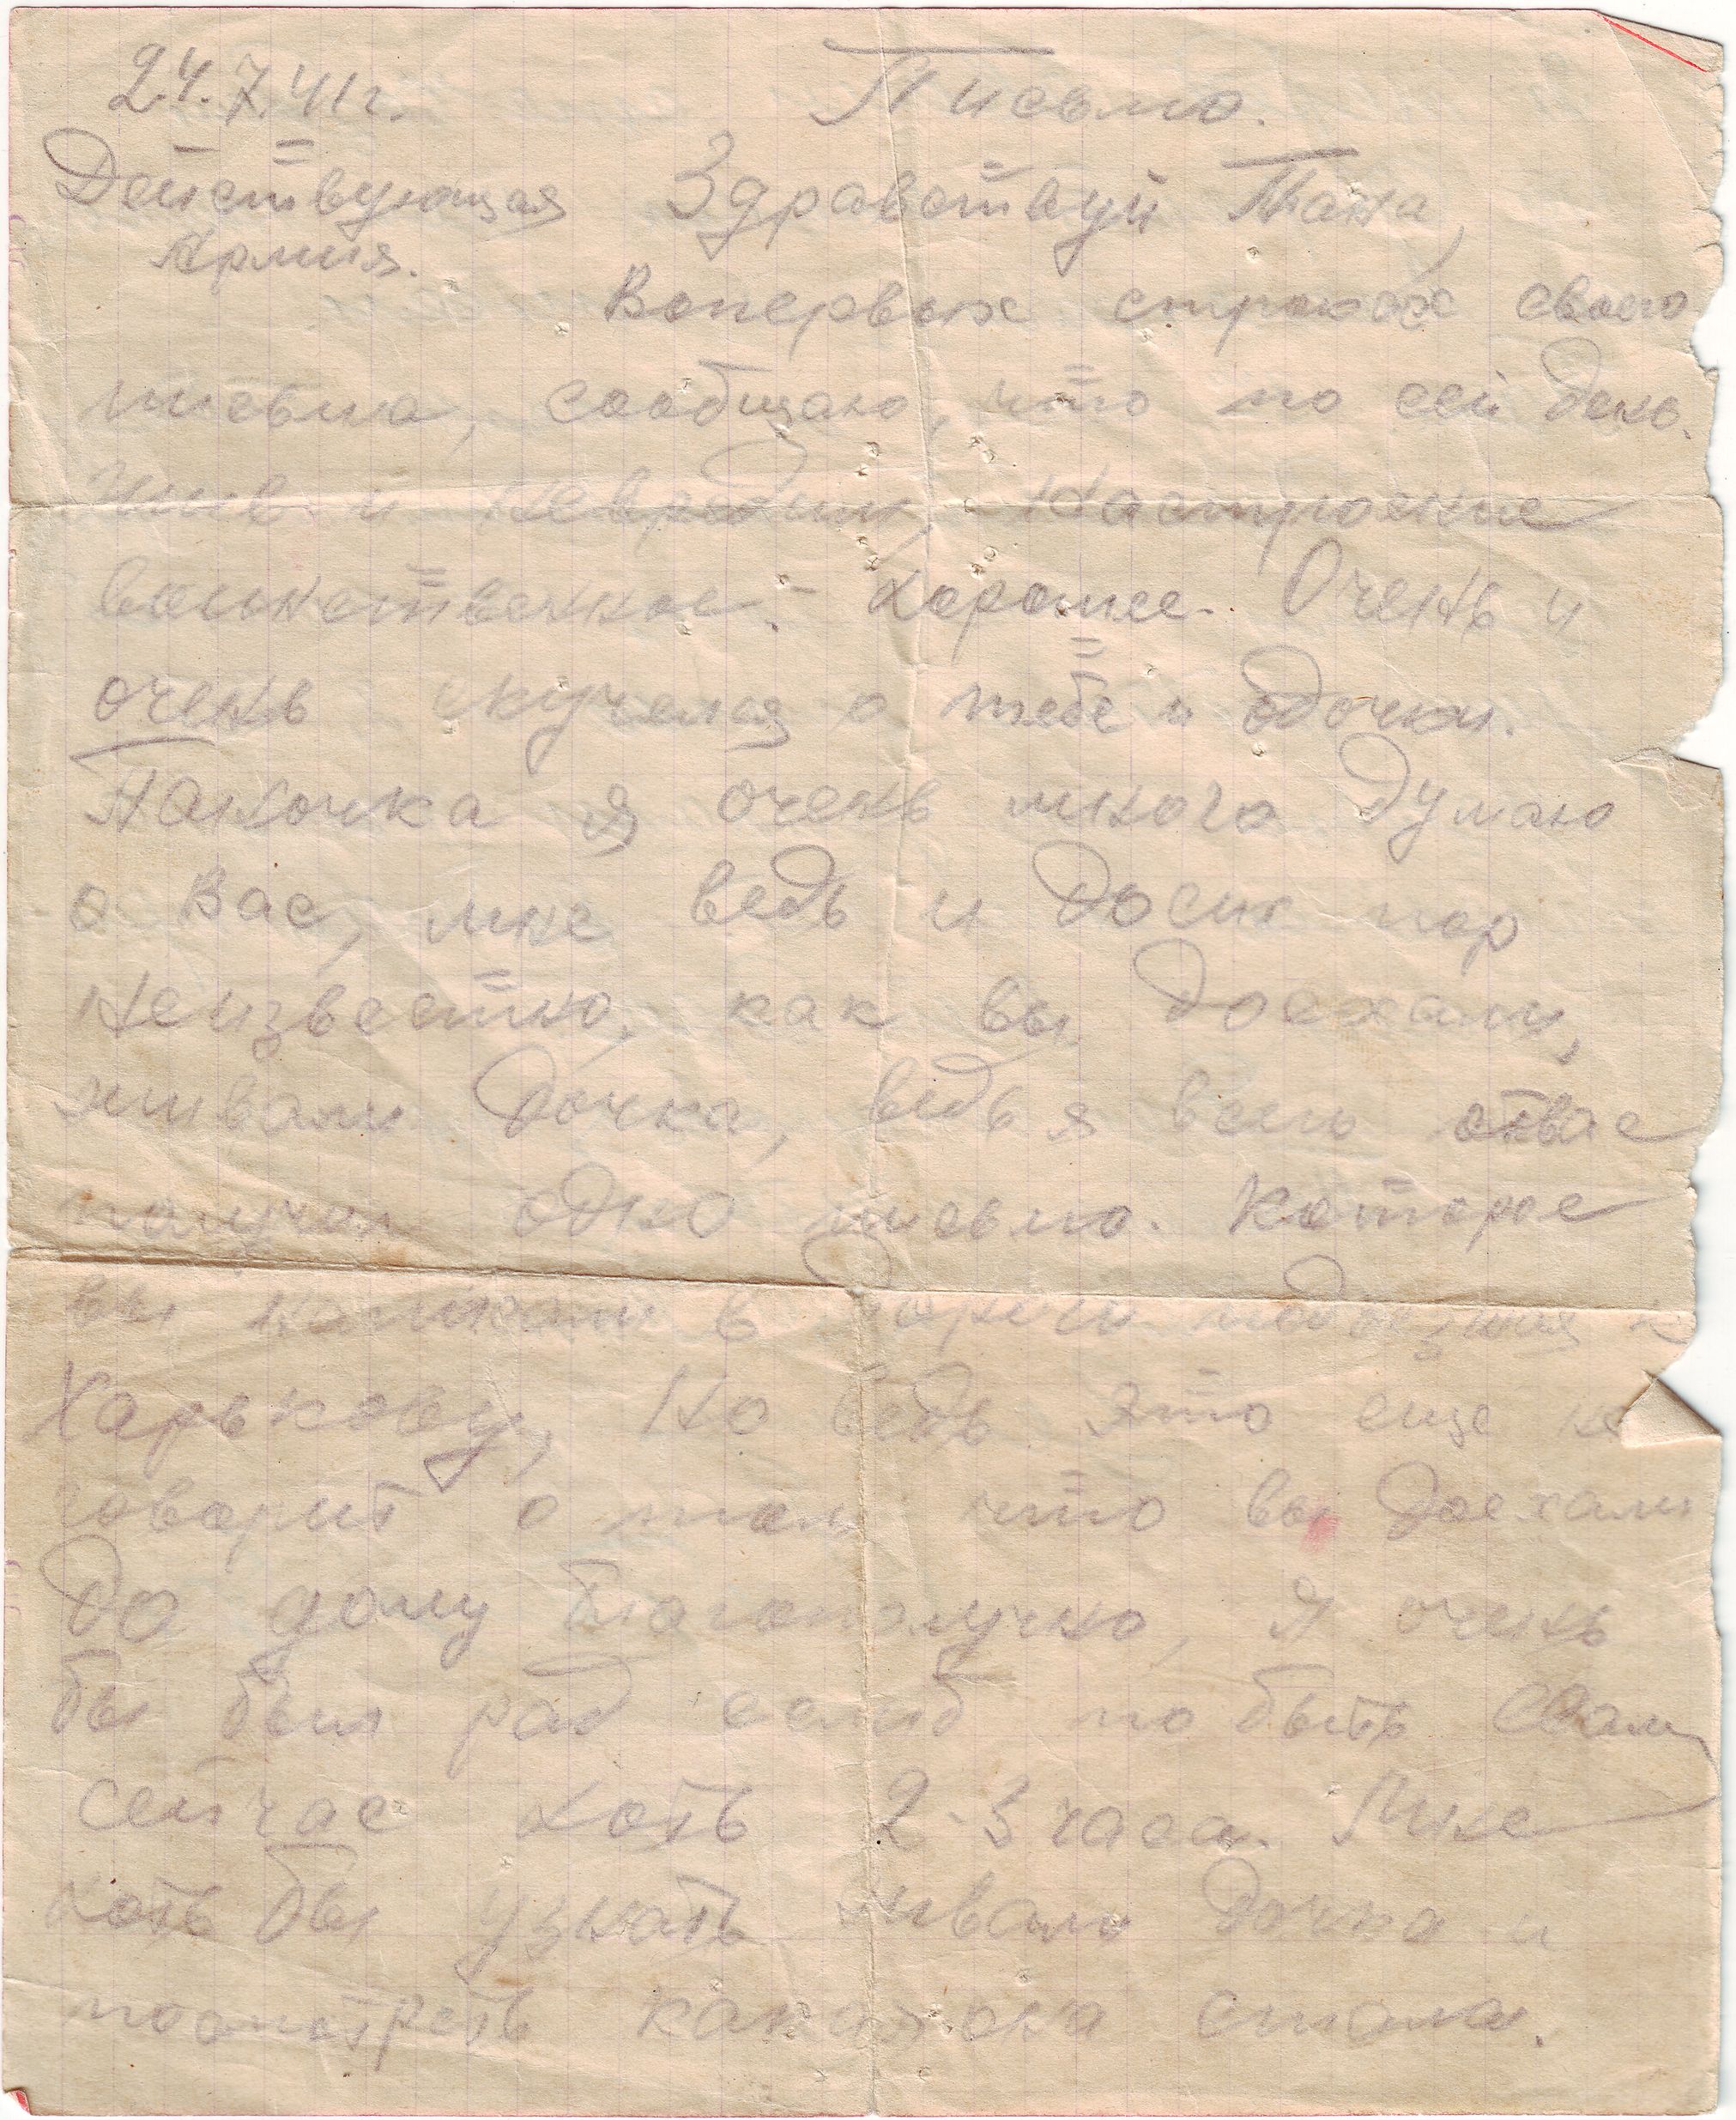 24.7.41г.
Письмо.
Действующая
Армия.
Здравствуй Таня,
Вопервых строках своего
письма, сообщаю, что по сей день.
жив и невредим, Настроение
воинственное - хорошее. Очень и
очень скучился о тебе и одочки.
Таничка я очень много думаю
о Вас, мне ведь и досих пор
неизвестно, как вы доехали,
живали дочка, ведь я всего отвас
получил одно письмо. Которое
вы написали в дороги подъезжая к
Харькову, Но ведь это еще не
говорит о том что вы доехали
до дому благополучно, я очень
бы был рад еслиб побыть Свами
сейчас хоть 2-3 часа. Мне
хотьбы узнать живали дочка и
посмотреть какая она стала.